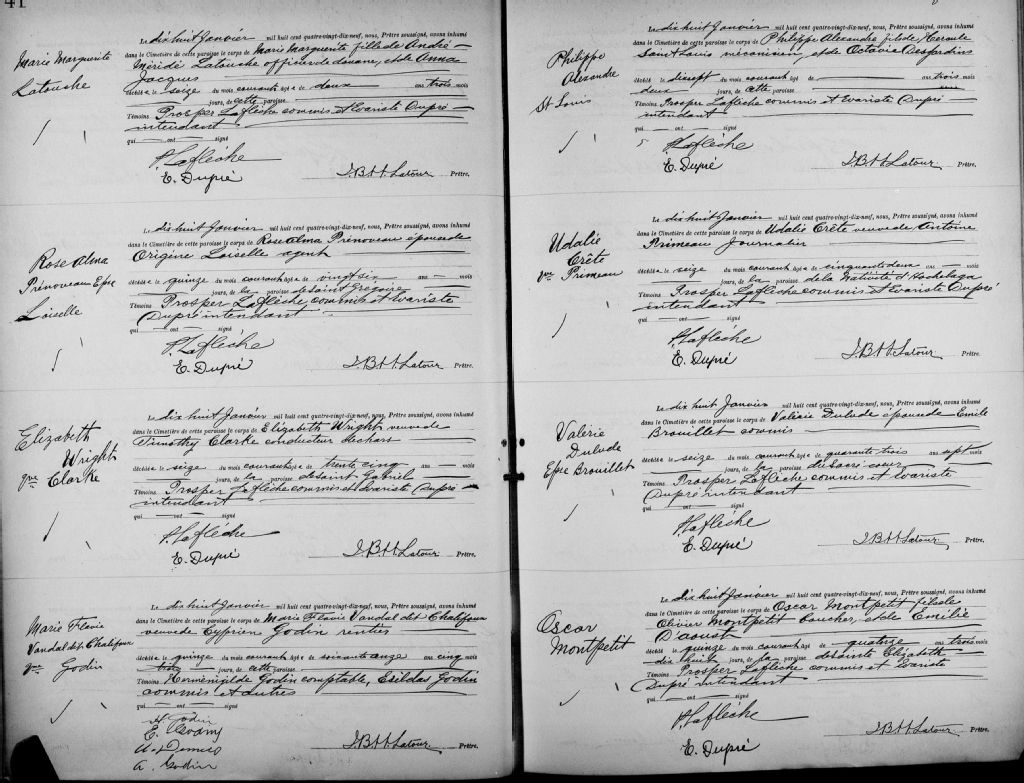 41
Marie Marguerite
Latouche
Le dix huit Janvier mil huit cent quatre-vingt-dix-neuf, nous, Prêtre soussigné, avons inhumé
dans le Cimetière de cette paroisse le corps de Marie Marguerite fille de André
Méridé Latouche officier de douane, et de Anna
Jacques
décédée le seize du mois courant âgée de deux ans trois mois
jours, de cette paroisse
Témoins Prosper Laflèche commis et Evariste Dupré
intendant
qui ont signé
P. Laflèche
E. Dupré
J.B.H. Latour Prêtre.
Rose Alma
Prénoveau Epse
Loiselle
Le dix huit Janvier mil huit cent quatre-vingt-dix-neuf, nous, Prêtre soussigné, avons inhumé
dans le Cimetière de cette paroisse le corps de Rose Alma Prénoveau épouse de
Origène Loiselle agent
décédée le quinze du mois courant âgée de vingt six ans mois
jours, de la paroisse de Saint Grégoire
Témoins Prosper Laflèche commis et Evariste
Dupré intendant
qui ont signé
P. Laflèche
E. Dupré
J.B.H. Latour Prêtre.
Elizabeth
Wright
Vve Clarke
Le dix huit Janvier mil huit cent quatre-vingt-dix-neuf, nous, Prêtre soussigné, avons inhumé
dans le Cimetière de cette paroisse le corps de Elizabeth Wright veuve de
Timothy Clarke conducteur de chars
décédée le seize du mois courant âgée de trente cinq ans mois
jours, de la paroisse de Saint Gabriel
Témoins Prosper Laflèche commis et Evariste Dupré
intendant
qui ont signé
P. Laflèche
E. Dupré
J.B.H. Latour Prêtre.
Marie Flavie
Vandal dit Chalifoux
Vve Godin
Le dix huit Janvier mil huit cent quatre-vingt-dix-neuf, nous, Prêtre soussigné, avons inhumé
dans le Cimetière de cette paroisse le corps de Marie Flavie Vandal dit Chalifoux
veuve de Cyprien Godin rentier
décédée le quinze du mois courant âgée de soixante onze ans cinq
mois jours, de cette paroisse
Témoins Herménigilde Godin comptable, Exildas Godin
commis et autres
qui ont signé
H. Godin
E.
A. Godin
J.B.H. Latour Prêtre.
Philippe
Alexandre
St Louis
Le dix huit Janvier mil huit cent quatre-vingt-dix-neuf, nous, Prêtre soussigné, avons inhumé
dans le Cimetière de cette paroisse le corps de Philippe Alexandre fils de Hercule
Saint Louis mécanicien, et de Octavie Desjardins
décédé le dix sept du mois courant âgé de ans trois mois
deux jours, de cette paroisse
Témoins Prosper Laflèche commis et Evariste Dupré
intendant
qui ont signé
P. Laflèche
E. Dupré
J.B.H. Latour Prêtre.
Udalie
Crête
Vve Primeau
Le dix huit Janvier mil huit cent quatre-vingt-dix-neuf, nous, Prêtre soussigné, avons inhumé
dans le Cimetière de cette paroisse le corps de Udalie Crête veuve de Antoine
Primeau Journalier
décédée le seize du mois courant âgée de cinquante deux ans mois
jours, de la paroisse de la Nativité d'Hochelaga
Témoins Prosper Laflèche commis et Evariste Dupré
intendant
qui ont signé
P. Laflèche
E. Dupré
J.B.H. Latour Prêtre.
Valérie
Dulude
Epse Brouillet
Le dix huit Janvier mil huit cent quatre-vingt-dix-neuf, nous, Prêtre soussigné, avons inhumé
dans le Cimetière de cette paroisse le corps de Valérie Dulude épouse de Emile
Brouillet commis
décédée le seize du mois courant âgée de quarante trois ans sept mois
jours, de la paroisse du Sacré-cœur
Témoins Prosper Laflèche commis et Evariste
Dupré intendant
qui ont signé
P. Laflèche
E. Dupré
J.B.H. Latour Prêtre.
Oscar
Montpetit
Le dix huit Janvier mil huit cent quatre-vingt-dix-neuf, nous, Prêtre soussigné, avons inhumé
dans le Cimetière de cette paroisse le corps de Oscar Montpetit fils de
Olivier Montpetit boucher, et de Emélie
D'aoust
décédé le quinze du mois courant âgé de quatorze ans trois mois
dix huit jours, de la paroisse de Sainte Elizabeth
Témoins Prosper Laflèche commis et Evariste
Dupré intendant
qui ont signé
P. Laflèche
E. Dupré
J.B.H. Latour Prêtre.